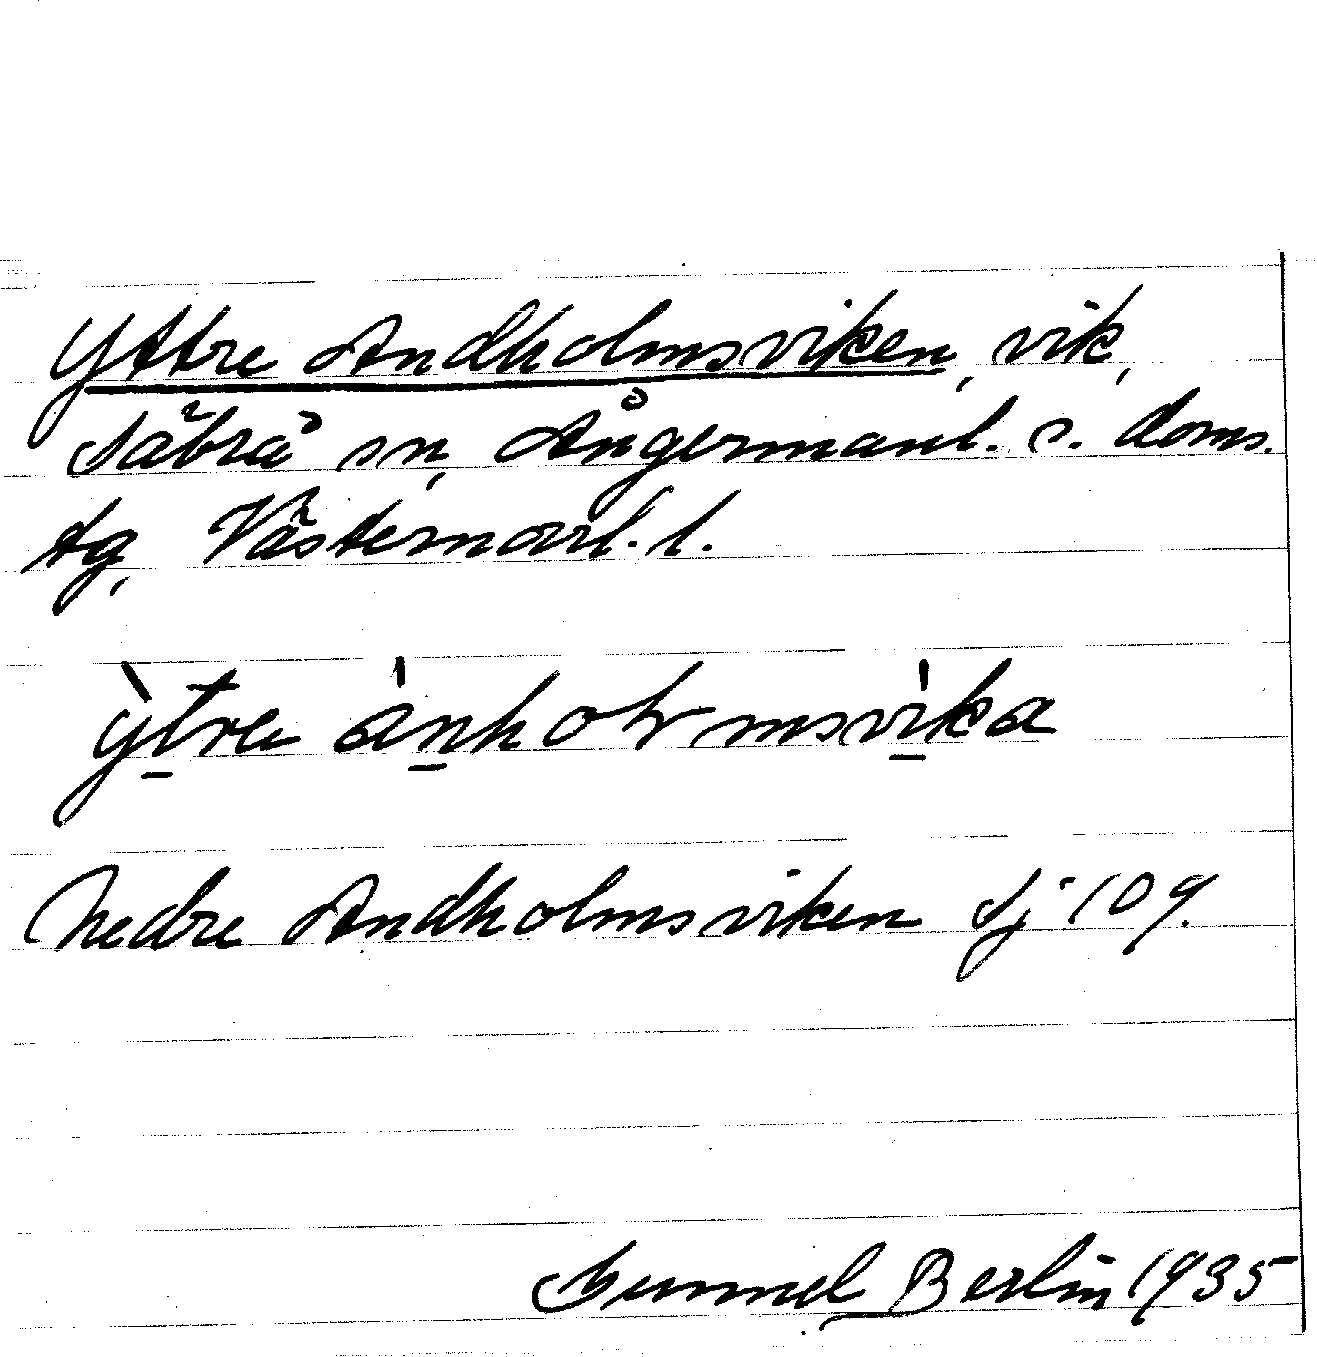 Yttre Andholmsviken, vik,
Säbrå sn, Ångermanl. s. doms.
tg, Västernorrl. l.
ỳtre ànhoḷmsvìka
Nedre Andholmsviken Sj 109.
Gunnel Berlin 1935